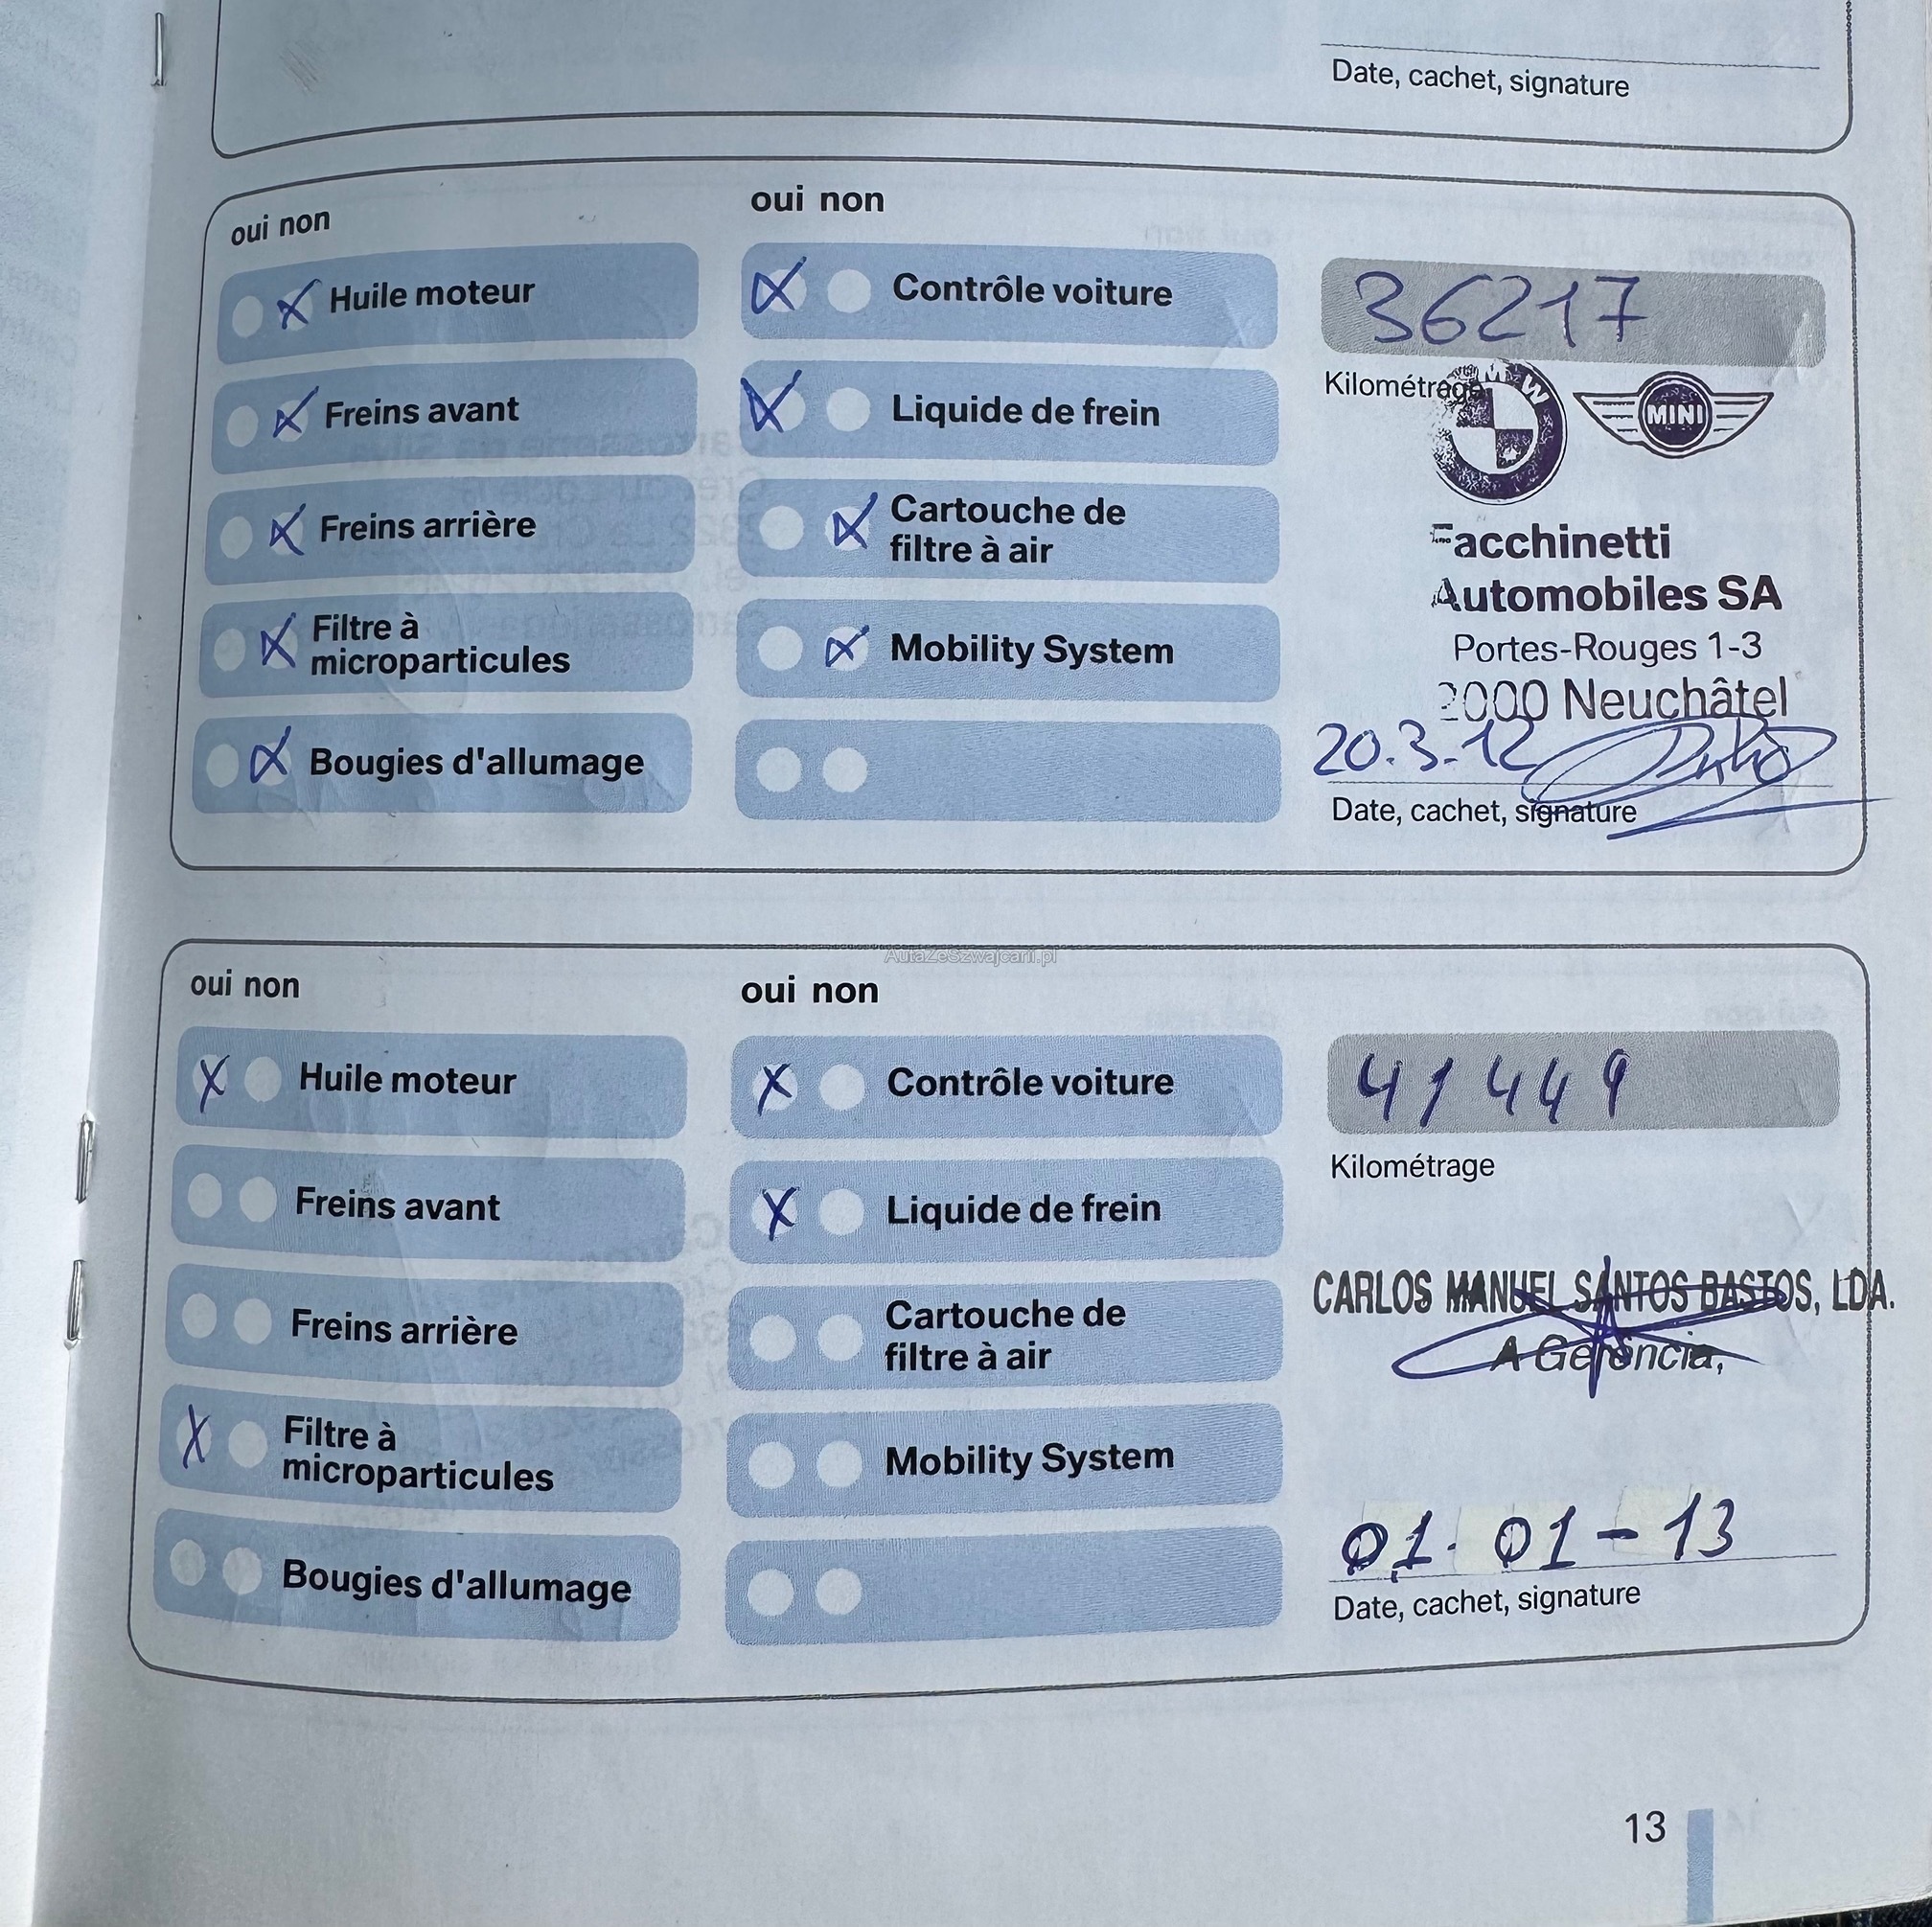 Date, cachet, signature
oui non
oui non
Huile moteur
Contrôle voiture
36217
Freins avant
Liquide de frein
Kilométrage
BMW
MINI
Freins arrière
Cartouche de
filtre à air
Facchinetti
Automobiles SA
Filtre à
microparticules
Mobility System
Portes-Rouges 1-3
2000 Neuchâtel
Bougies d'allumage
20.3.12
Date, cachet, signature
AutaZeSzwajcarii.pl
oui non
oui non
Huile moteur
Contrôle voiture
41449
Freins avant
Liquide de frein
Kilométrage
Freins arrière
Cartouche de
filtre à air
CARLOS MANUEL SANTOS BASTOS, LDA.
A Gerência,
Filtre à
microparticules
Mobility System
Bougies d'allumage
01.01-13
Date, cachet, signature
13